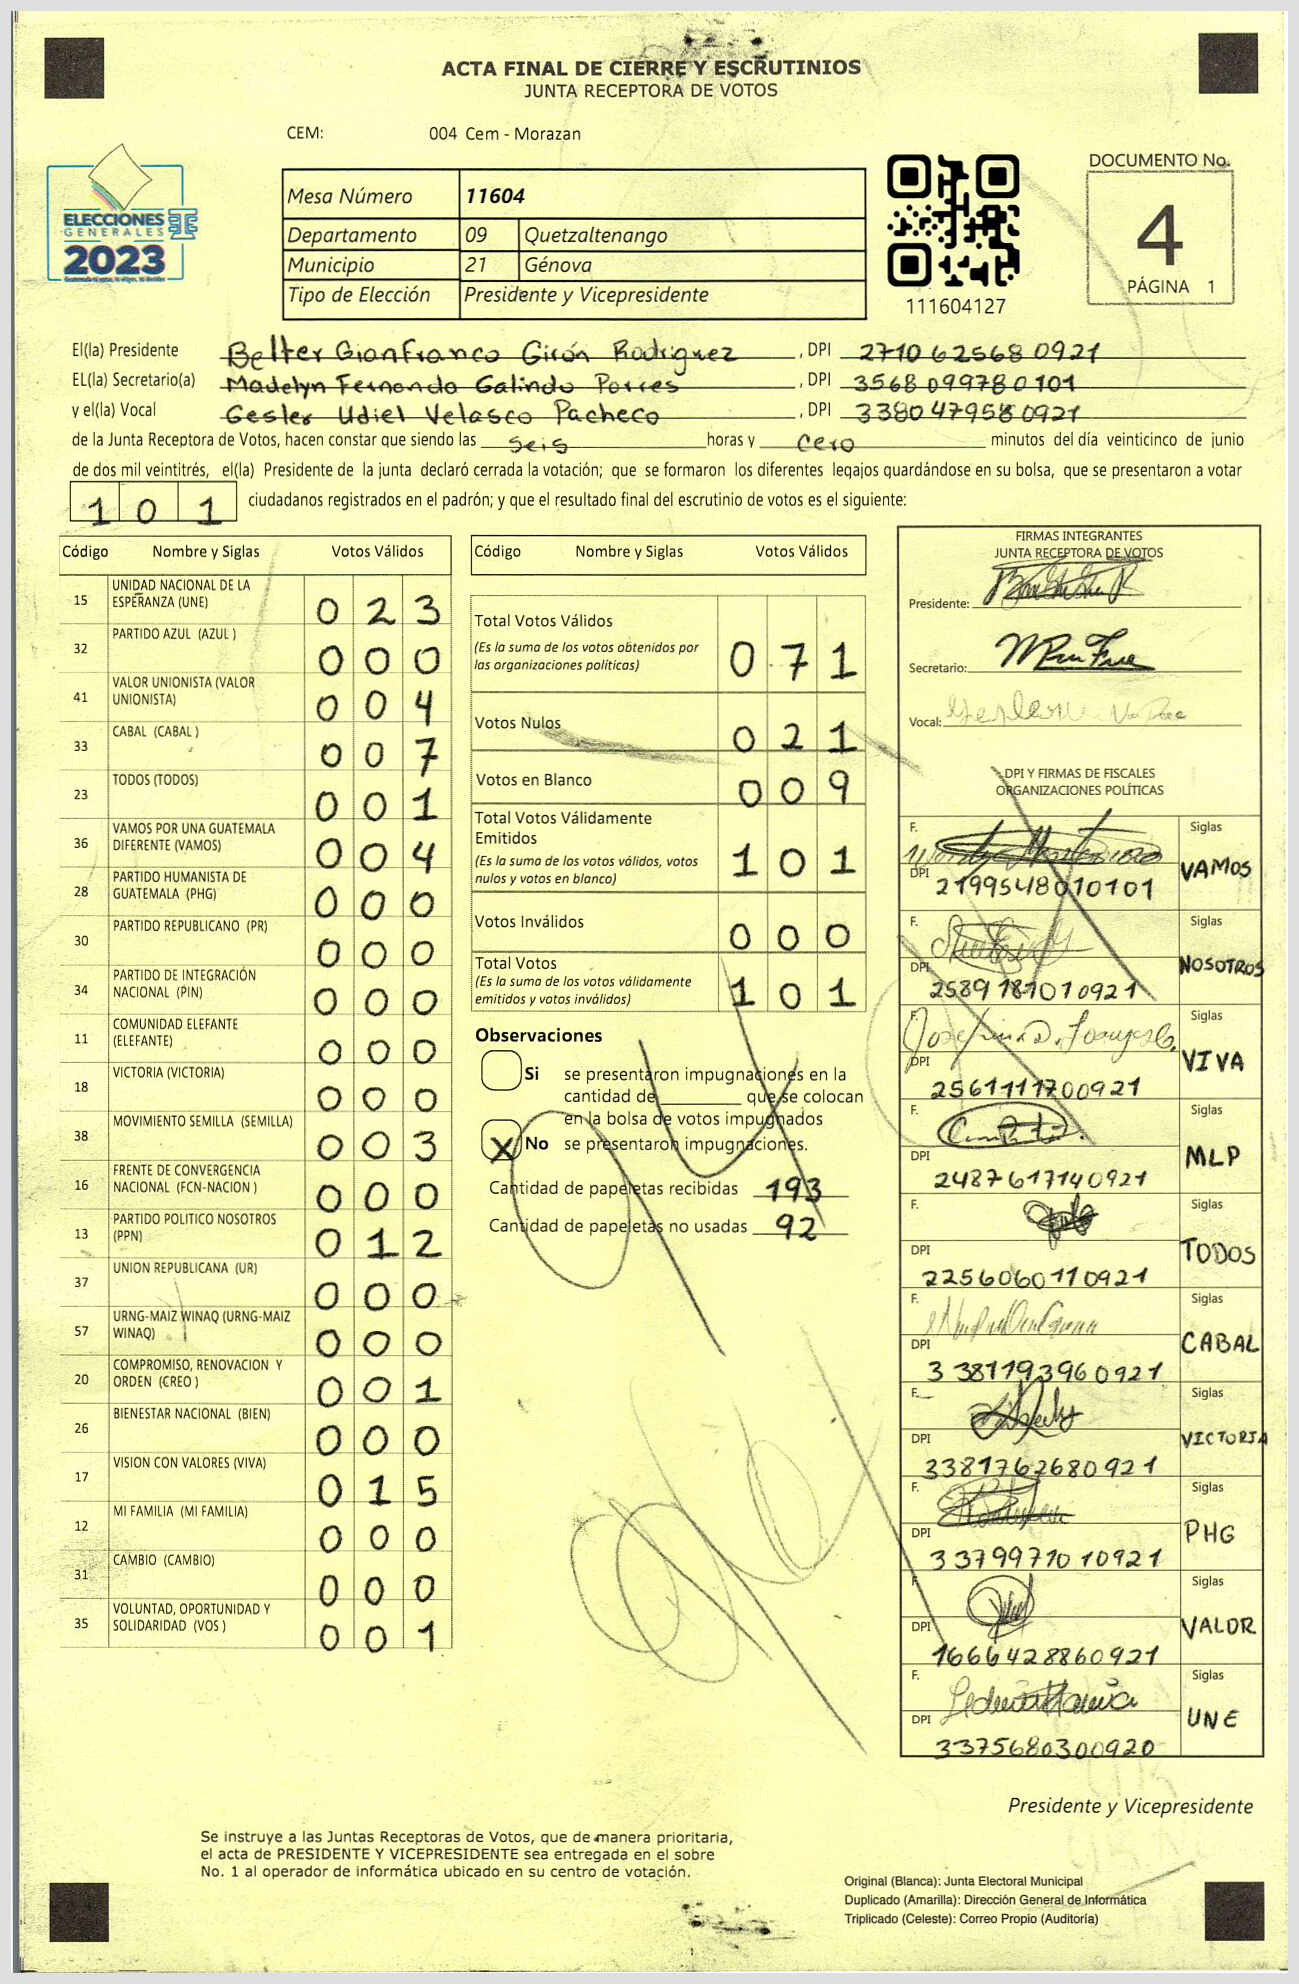 ACTA FINAL DE CIERRE Y ESCRUTINIOS
JUNTA RECEPTORA DE VOTOS
CEM: 004 Cem - Morazan
ELECCIONES
GENERALES
2023
Mesa Número 11604
Departamento 09 Quetzaltenango
Municipio 21 Génova
Tipo de Elección Presidente y Vicepresidente
111604127
DOCUMENTO No.
4
PÁGINA 1
El(la) Presidente Belter Gionfranco Girón Rodriguez , DPI 2710 62568 0921
EL(la) Secretario(a) Madelyn Fernando Galindo Porres , DPI 3568 099780101
y el(la) Vocal Gesler Udiel Velasco Pacheco , DPI 3380 47958 0921
de la Junta Receptora de Votos, hacen constar que siendo las seis horas y cero minutos del día veinticinco de junio
de dos mil veintitrés, el(la) Presidente de la junta declaró cerrada la votación; que se formaron los diferentes legajos quardándose en su bolsa, que se presentaron a votar
1 0 1 ciudadanos registrados en el padrón; y que el resultado final del escrutinio de votos es el siguiente:
Código Nombre y Siglas Votos Válidos
15 UNIDAD NACIONAL DE LA
ESPERANZA (UNE) 0 2 3
32 PARTIDO AZUL (AZUL ) 0 0 0
41 VALOR UNIONISTA (VALOR
UNIONISTA) 0 0 4
33 CABAL (CABAL ) 0 0 7
23 TODOS (TODOS) 0 0 1
36 VAMOS POR UNA GUATEMALA
DIFERENTE (VAMOS) 0 0 4
28 PARTIDO HUMANISTA DE
GUATEMALA (PHG) 0 0 0
30 PARTIDO REPUBLICANO (PR) 0 0 0
34 PARTIDO DE INTEGRACIÓN
NACIONAL (PIN) 0 0 0
11 COMUNIDAD ELEFANTE
(ELEFANTE) 0 0 0
18 VICTORIA (VICTORIA) 0 0 0
38 MOVIMIENTO SEMILLA (SEMILLA) 0 0 3
16 FRENTE DE CONVERGENCIA
NACIONAL (FCN-NACION ) 0 0 0
13 PARTIDO POLITICO NOSOTROS
(PPN) 0 1 2
37 UNION REPUBLICANA (UR) 0 0 0
57 URNG-MAIZ WINAQ (URNG-MAIZ
WINAQ) 0 0 0
20 COMPROMISO, RENOVACION Y
ORDEN (CREO ) 0 0 1
26 BIENESTAR NACIONAL (BIEN) 0 0 0
17 VISION CON VALORES (VIVA) 0 1 5
12 MI FAMILIA (MI FAMILIA) 0 0 0
31 CAMBIO (CAMBIO) 0 0 0
35 VOLUNTAD, OPORTUNIDAD Y
SOLIDARIDAD (VOS ) 0 0 1
Código Nombre y Siglas Votos Válidos
Total Votos Válidos
(Es la suma de los votos obtenidos por
las organizaciones políticas) 0 7 1
Votos Nulos 0 2 1
Votos en Blanco 0 0 9
Total Votos Válidamente
Emitidos
(Es la suma de los votos válidos, votos
nulos y votos en blanco) 1 0 1
Votos Inválidos 0 0 0
Total Votos
(Es la suma de los votos válidamente
emitidos y votos inválidos) 1 0 1
Observaciones
Si se presentaron impugnaciones en la
cantidad de ________ que se colocan
en la bolsa de votos impugnados
X No se presentaron impugnaciones.
Cantidad de papeletas recibidas 193
Cantidad de papeletas no usadas 92
FIRMAS INTEGRANTES
JUNTA RECEPTORA DE VOTOS
Presidente:
Secretario:
Vocal:
DPI Y FIRMAS DE FISCALES
ORGANIZACIONES POLÍTICAS
F. Siglas
DPI 2199548010101 VAMOS
F. Siglas
DPI 2589181010921 NOSOTROS
F. Siglas
DPI 2561111700921 VIVA
F. Siglas
DPI 2487617140921 MLP
F. Siglas
DPI 2256060110921 TODOS
F. Siglas
DPI 3381193960921 CABAL
F. Siglas
DPI 3381762680921 VICTORIA
F. Siglas
DPI 3379971010921 PHG
F. Siglas
DPI 1666428860921 VALOR
F. Siglas
DPI 3375680300920 UNE
Presidente y Vicepresidente
Se instruye a las Juntas Receptoras de Votos, que de manera prioritaria,
el acta de PRESIDENTE Y VICEPRESIDENTE sea entregada en el sobre
No. 1 al operador de informática ubicado en su centro de votación.
Original (Blanca): Junta Electoral Municipal
Duplicado (Amarilla): Dirección General de Informática
Triplicado (Celeste): Correo Propio (Auditoría)